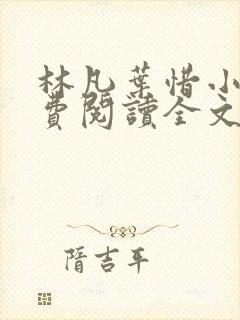 林凡葉惜小
費閱讀全文
隋吉平